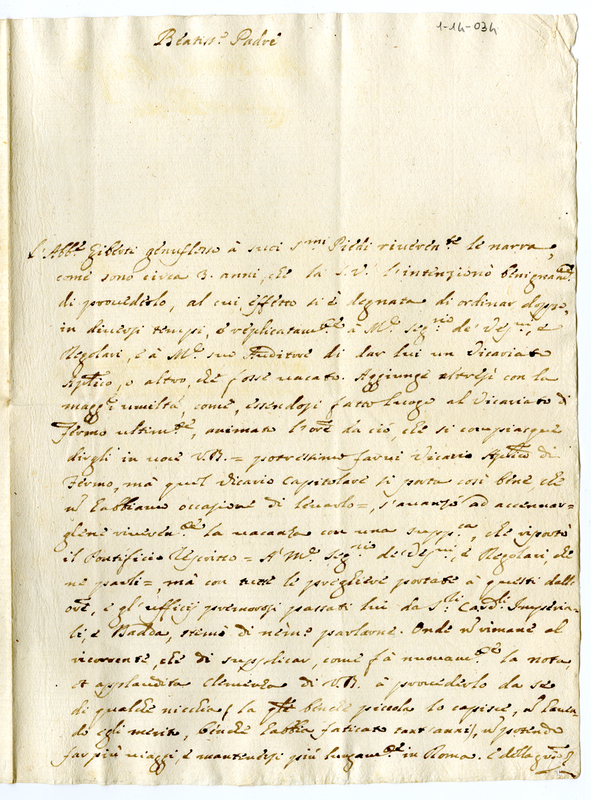 1-14-034
Beatis.mo Padre
L'Abb.e Giberti genuflesso à suoi S.mi Piedi riverent.te le narra,
come sono circa 3. anni, che la S.V. l'intenzionò benignam.te
di provederlo, al cui effetto si è degnata di ordinar doppo,
in diversi tempi, e replicatam.te à M.r Seg.rio de' Ves.vi, e
Regolari, e à M.r suo Auditore di dar lui un Vicariato
Ap.lico, o altro, che fosse vacato. Aggiunge altresì con la
magg.e umiltà, come, essendosi fatto luogo al Vicariato di
Fermo ultim.te, animato l'ore da ciò, che si compiacque
dirgli in voce V.B. = potressimo farvi Vicario Ap.lico di
Fermo, mà quel Vicario Capitolare si porta così bene che
n abbiamo occasione di levarlo =, s'avanzò ad accennar=
gliene riverent.te la vacanza con una supp.ca, che riportò
il Pontificio Rescritto = A M.r Seg.rio de' Ves.vi, e Regolari, che
ne parli =, mà con tutte le preghiere portate à questi dall'
ore, e gl'ufficij premurosi passati lui da S.ri Card.li Imperia=
li, e Badda, stimò di nem.o parlarne. Onde n rimane al
ricorrente, che di supplicar, come fà nuovam.te la nota,
et applaudita Clemenza di V.B. à provederlo da se
di qualche nicchia (la q.le benche piccola lo capisce, n haven=
do egli merito, benche habbia faticato tant'anni), n potendo
far più viaggi, e mantenersi più lungam.te in Roma. E della gra